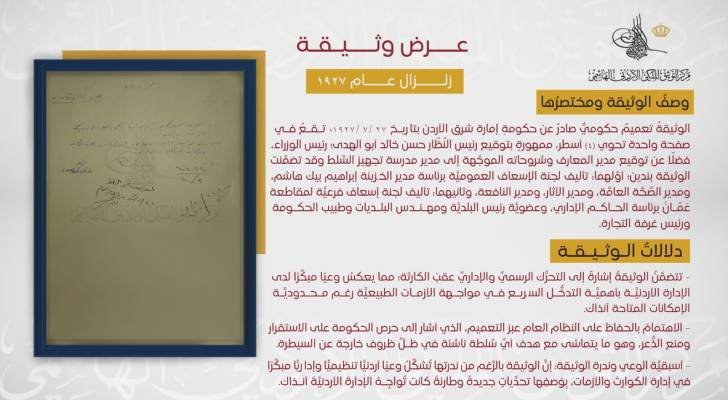 مركز التوثيق الملكي الأردني الهاشمي
عرض وثيقة
زلزال عام ١٩٢٧
وصفُ الوثيقة ومختصرُها
الوثيقةُ تعميمٌ حكوميٌّ صادرٌ عن حكومةِ إمارة شرق الأردن بتاريخ ٢٧ /٧ /١٩٢٧؛ تقعُ في
صفحة واحدة تحوي (٤) أسطر، ممهورةٍ بتوقيع رئيس النُظّار حسن خالد أبو الهدى؛ رئيس الوزراء،
فضلًا عن توقيع مدير المعارف وشروحاته الموجّهة إلى مدير مدرسة تجهيز السّلط وقد تضمّنت
الوثيقة بندين؛ أوّلهما؛ تأليف لجنة الإسعاف العموميّة برئاسة مدير الخزينة إبراهيم بيك هاشم،
ومدير الصّحّة العامّة، ومدير الآثار، ومدير النافعة، وثانيهما؛ تأليف لجنة إسعاف فرعيّة لمقاطعة
عَمّانَ برئاسة الحاكم الإداري، وعضويّة رئيس البلديّة ومهندس البلديات وطبيب الحكومة
ورئيس غرفة التجارة.
دلالاتُ الوثيقة
- تتضمّنُ الوثيقةُ إشارةً إلى التحرُّك الرسميِّ والإداريِّ عقبَ الكارثة؛ مما يعكسُ وعيًا مبكرًا لدى
الإدارة الأردنيّة بأهميّة التدخُّل السريع في مواجهة الأزمات الطبيعيّة رغم محدوديّة
الإمكانات المتاحة آنذاك.
- الاهتمامُ بالحفاظ على النظام العام عبرَ التعميم، الذي أشار إلى حرص الحكومة على الاستقرار
ومنع الذُّعر، وهو ما يتماشى مع هدف أيِّ سُلطة ناشئة في ظلِّ ظروف خارجة عن السيطرة.
- أسبقيّة الوعي وندرة الوثيقة؛ إنَّ الوثيقة بالرُّغم من ندرتها تُشكّلُ وعيًا أردنيًّا تنظيميًّا وإداريًّا مبكرًا
في إدارة الكوارث والأزمات، بوصفها تحدّياتٍ جديدةً وطارئةً كانت تُواجِهُ الإدارة الأردنيّة آنذاك.